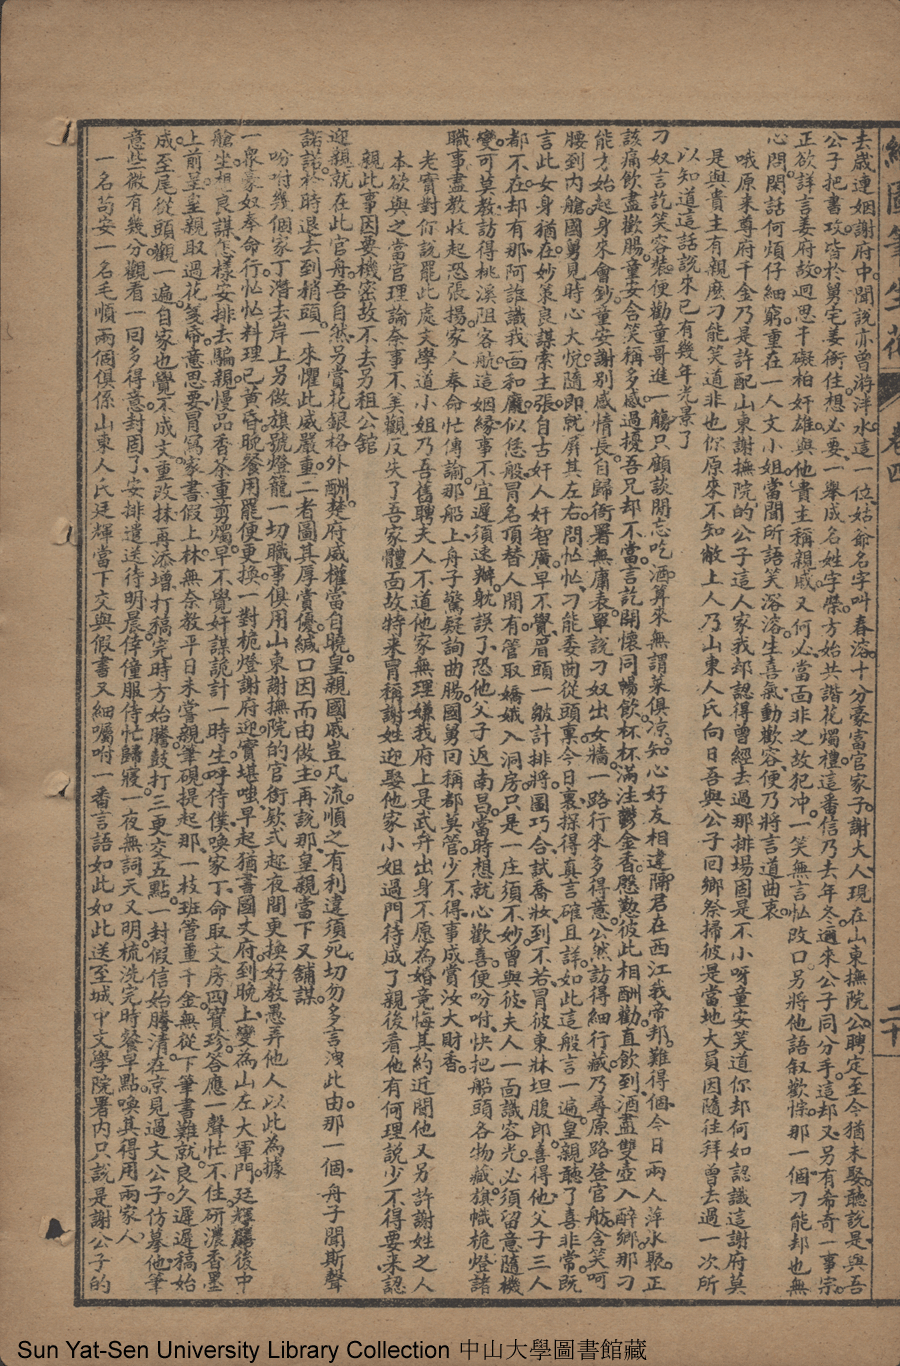 繪圖筆生花
卷四
二十
去歲連姻謝府中聞說亦曾游泮水這一位姑爺名字叫春溶十分豪富官家子謝大人現在山東撫院公聘定至今猶未娶聽說是與吾
公子把書攻皆於舅宅姜衙住想必要一舉成名姓字榮方始共諧花燭禮這番信乃去年冬邇來公子同分手這却又另有希奇一事宗
正欲詳言姜府故迴思干礙柏奸雄與他貴主稱親戚又何必當面非之故犯冲一笑無言忙改口另將他語叙歡悰那一個刁能却也無
心閒閑話何煩仔細窮重在一人文小姐當聞所語笑溶溶生喜氣動歡容便乃將言道曲衷
哦原來尊府千金乃是許配山東謝撫院的公子這人家我却認得曾經去過那排場固是不小呀童安笑道你却何如認識這謝府莫
是與貴主有親麽刁能笑道非也你原來不知敝上人乃山東人氏向日吾與公子回鄉祭掃彼是當地大員因隨往拜曾去過一次所
以知道這話說來已有幾年光景了
刁奴言訖笑容裝便勸童哥進一觴只顧談閒忘吃酒算來無謂菜俱凉知心好友相違隔君在西江我帝邦難得個今日兩人萍水聚正
該痛飲盡歡腸童安含笑稱多感過擾吾兄却不當言訖開懷同暢飲杯杯滿注鬱金香慇懃彼此相酬勸直飲到酒盡雙壺入醉鄉那刁
能方始起身來會鈔童安謝別感情長自歸衙署無庸表單說刁奴出女牆一路行來多得意公然訪得細行藏乃尋原路登官舫含笑呵
腰到内艙國舅見時心大悅隨即就屏其左右問忙忙刁能委曲從頭稟今日裏探得真言確且詳如此這般言一遍皇親聽了喜非常既
言此女身猶在妙策良謀索主張自古奸人奸智廣早不覺眉頭一皺計排將圖巧合試喬妝到不若冒彼東牀坦腹郎善得他父子三人
都不在却有那阿誰識我面和龐似恁般冒名頂替人閒有管取嬌娥入洞房只是一庄須不妙曾與彼夫人一面識容光必須留意隨機
變可莫教訪得桃溪阻客航這姻緣事不宜遲須速辦躭誤了恐他父子返南昌當時想就心歡喜便吩咐快把船頭各物藏旗幟桅燈諸
職事盡教收起恐張揚家人奉命忙傳諭那船上舟子驚疑詢曲腸國舅回稱都莫管少不得事成賞汝大財香
老實對你說罷此處文學道小姐乃吾舊聘夫人不道他家無理嫌我府上是武弁出身不愿為婚竟悔其約近聞他又另許謝姓之人
本欲與之當官理論奈事不美觀反失了吾家體面故特來冒稱謝姓迎娶他家小姐過門待成了親後看他有何理說少不得要來認
親此事因要機密故不去另租公舘
迎親就在此官舟吾自然另賞花銀格外酬樊府威權當自曉皇親國戚豈凡流順之有利違須死切勿多言洩此由那一個舟子聞斯聲
諾諾於時退去到梢頭一來懼此威嚴重二者圖其厚賞優緘口因而由做主再說那皇親當下又舖謀
吩咐幾個家丁潛去岸上另做旗號燈籠一切職事俱用山東謝撫院的官銜欵式趂夜間更換好教愚弄他人以此為據
一衆豪奴奉命行忙忙料理已黄昏晚餐用罷便更換一對桅燈謝府迎實堪嗤早起猶書國丈府到晚上變為山左大軍門廷輝膳後中
艙坐想良謀怎樣安排去騙親慢品香茶重剪燭早不覺奸謀詭計一時生呼待僕喚家丁命取文房四寶珍答應一聲忙不住研濃香墨
上前呈皇親取過花箋帋意思要冒寫家書假上林無奈教平日未嘗親筆硯提起那一枝班管重千金無從下筆書難就良久遲遲稿始
成至尾從頭觀一遍自家也覺不成文重改抹再添增打稿完時方始騰鼓打三更交五點一封假信始騰清在京見過文公子仿摹他筆
意些微有幾分觀看一回多得意封固了安排遣送待明晨倖僮服侍忙歸寢一夜無詞天又明梳洗完時餐早點喚其得用兩家人
一名苟安一名毛順兩個俱係山東人氏廷輝當下交與假書又細囑咐一番言語如此如此送至城中文學院署内只說是謝公子的
Sun Yat-Sen University Library Collection 中山大學圖書館藏